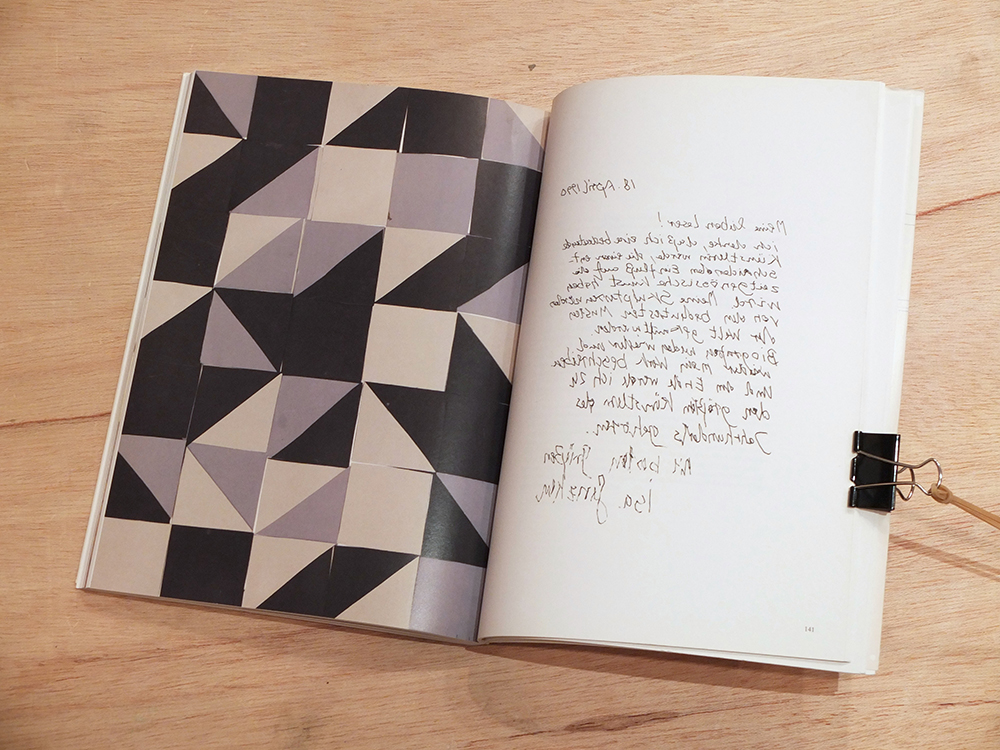 18. April 1990
Meine lieben Leser!
ich denke, daß ich eine bedeutende
Künstlerin werde, die einen ent-
scheidenden Einfluß auf die
zeitgenössische Kunst haben
wird. Meine Skulpturen werden
von den Museen
der Welt werden.
werden und
mein Werk beschreiben
Und am Ende werde ich zu
den größten Künstlern des
Jahrhunderts gehören.
Mit besten Grüßen
Isa Genzken
141